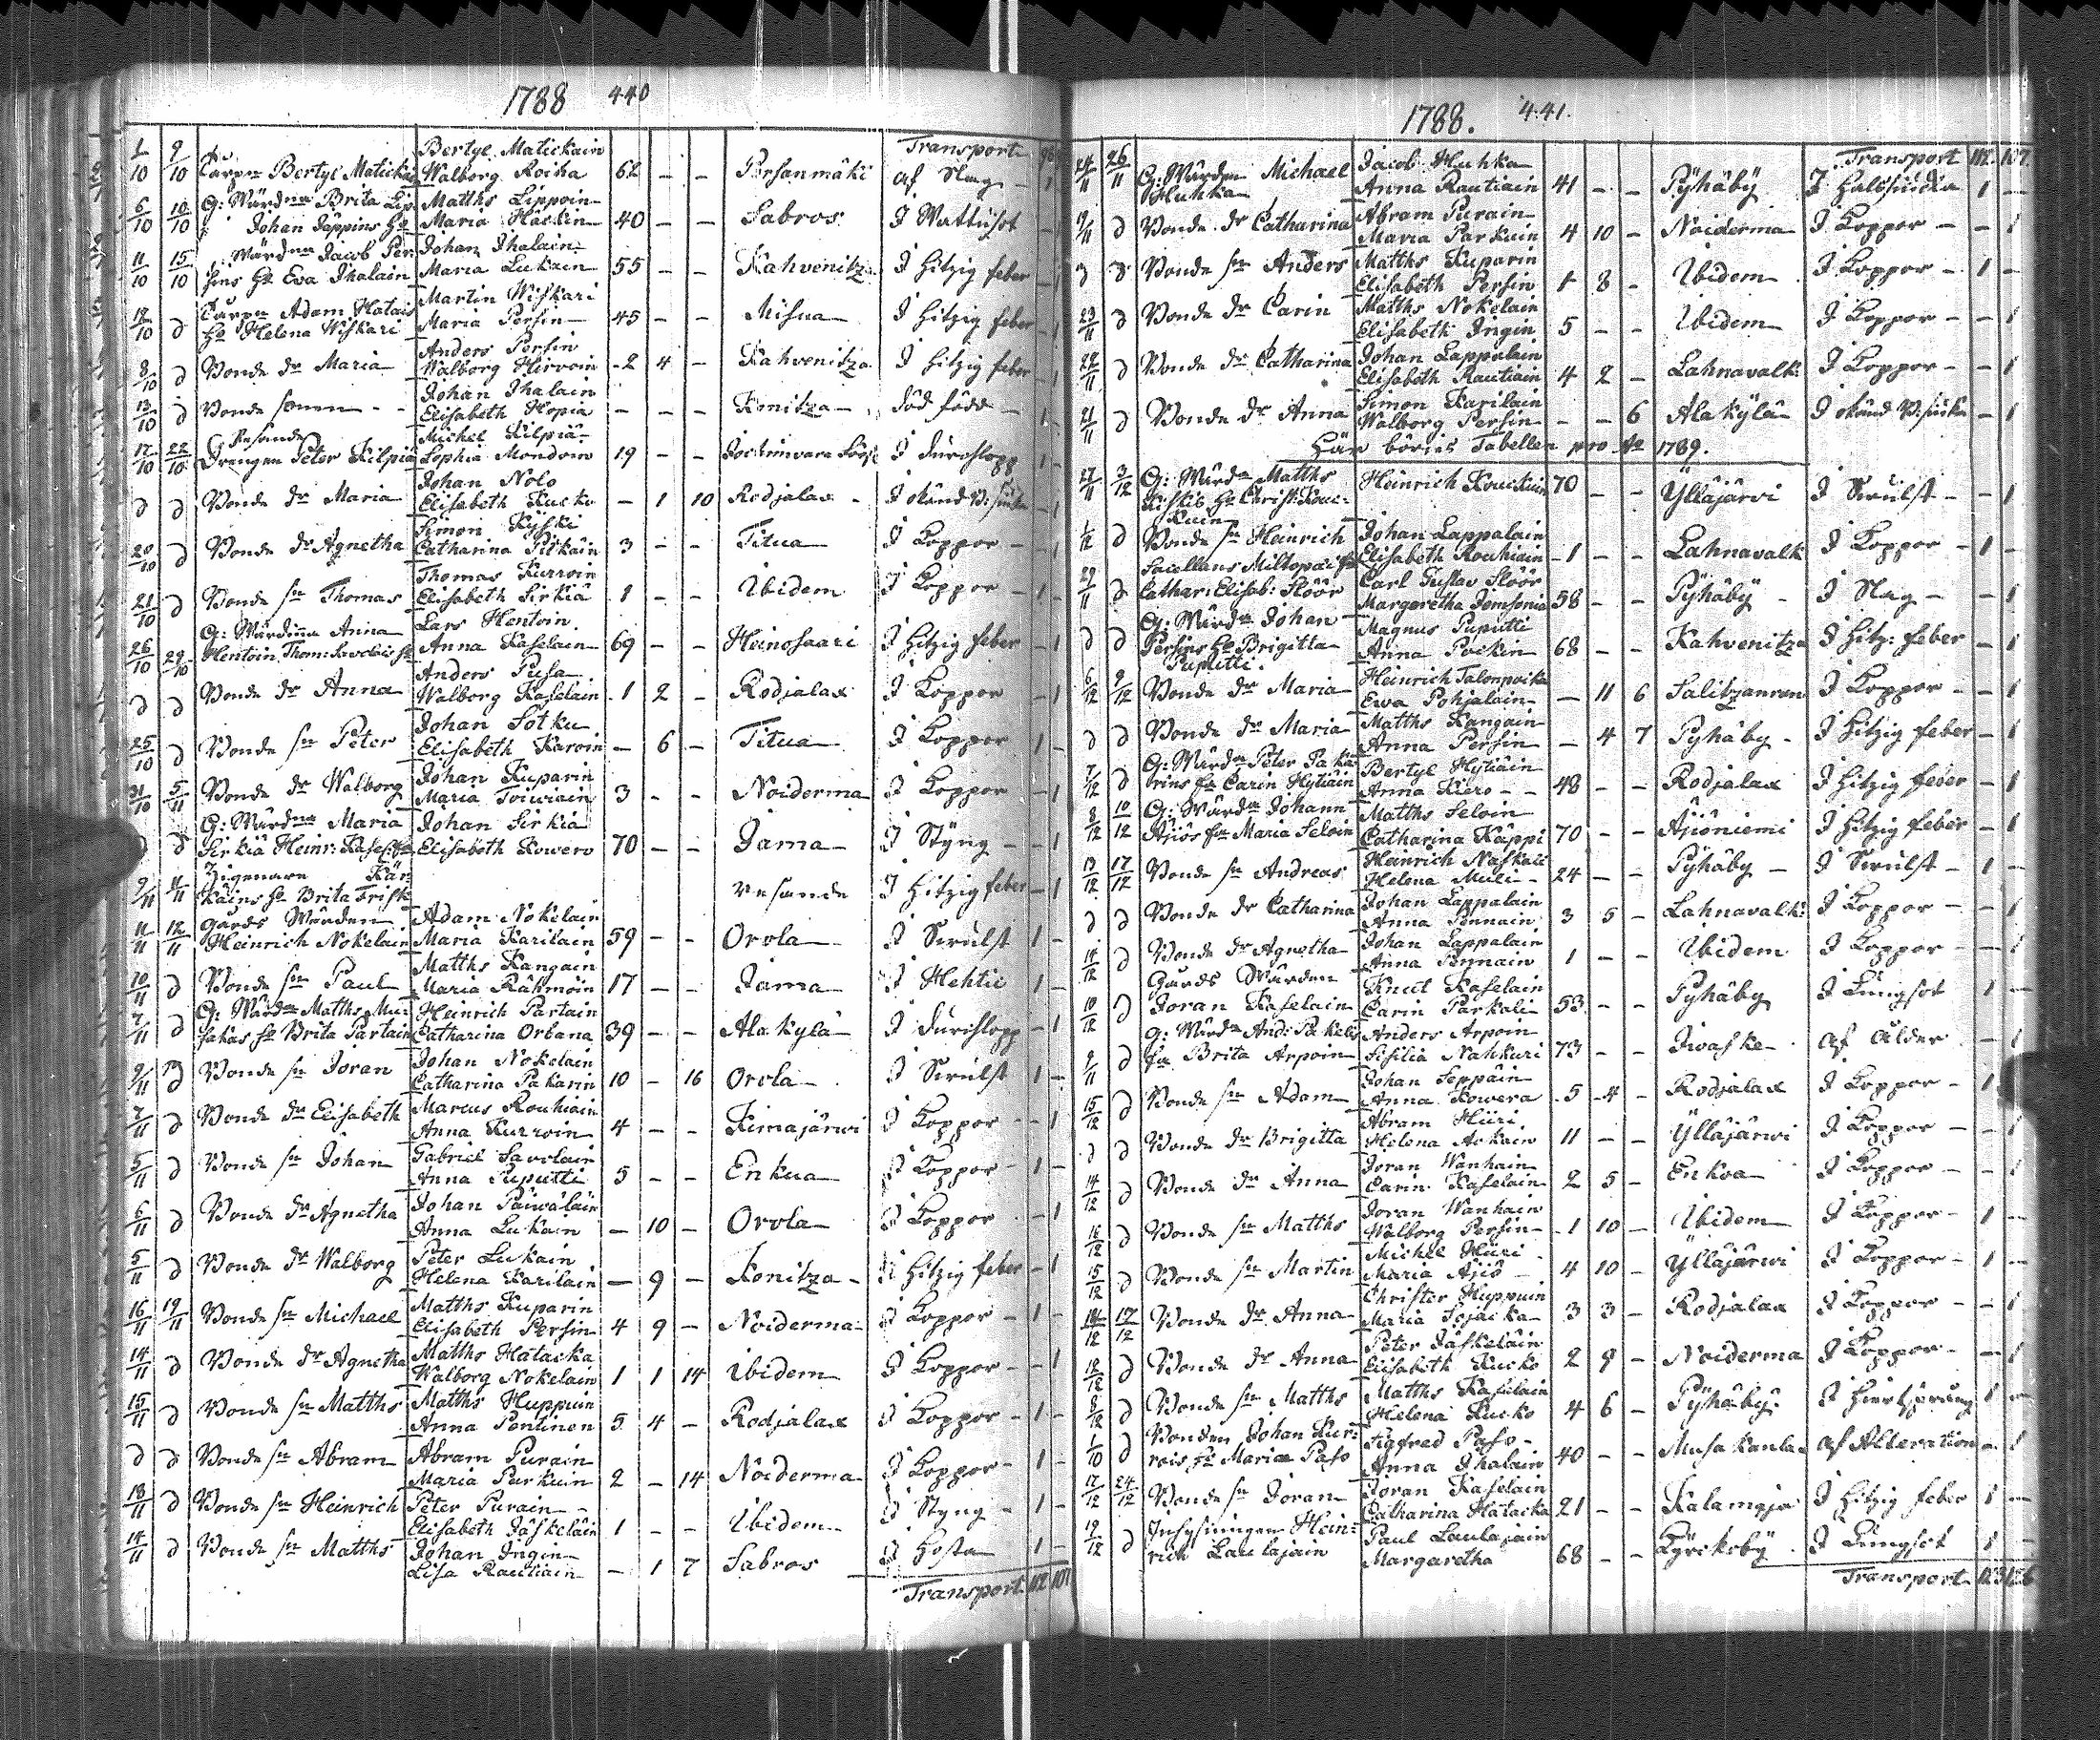 1788 440
Transport
2/10 9/10 Bertyl Matickain
Bertyl Walborg Rocka 62 - - Persanmäki af Slag - 1
6/10 10/10 G: Wärdna Brita Lip- Matths Lippoin
Johan Jäppins Ha Maria Häckin 40 - - Sabros I Wattusot
11/10 15/10 Wärdna Jacob Per- Johan Ihalain
sins Ha Eva Ihalain Maria Lukain 55 - - Kahvenitza I Hitzig feber
18/10 d Adam Hatais Martin Wiskari
Ha Helena Wiskari Maria Persin 45 - - Misua I Hitzig feber
8/10 d Bonde dr Maria Anders Persin
Walborg Hirvoin 2 4 - Kahvenitza I Hitzig feber
13/10 d Bonde sonen - - Johan Ihalain
Elisabeth Hopia - - - Konitza död född
17/10 22/10 Resande Michel Kilpiä
Drengen Peter Kilpiä Sophia 19 - - I durchlopp
d d Bonde dr Maria Johan Nolo
Elisabeth Kucko - 1 10 Rodjalax I okänd
20/10 d Bonde dr Agnetha Simon Kyski
Catharina Pitkäin 3 - - Titua I Koppor
21/10 d Bonde sn Thomas Thomas Kurroin
Elisabeth Sirkiä 1 - - Ibidem I Koppor
26/10 29/10 G: Wärdinna Anna Lars Hentoin
Hentoin Thom: Anna Kaselain 69 - - Heinosaari I Hitzig feber
d d Bonde dr Anna Anders Pusa
Walborg Kaselain 1 2 - Rodjalax I Koppor
25/10 d Bonde sn Peter Johan Sotku
Elisabeth Karoin - 6 - Titua I Koppor
31/10 5/11 Bonde dr Walborg Johan Kuparin
Maria Toiviain 3 - - Noiderma I Koppor
d d G: Wärdna Maria Johan Sirkiä
Sirkiä Heinr: Elisabeth Kowero 70 - - Jama I Styng
9/11 11/11 Zigenarn Kär-
käins Ha Brita Frisk resande I Hitzig feber
11/11 12/11 Gårds Wärden Adam Nokelain
Heinrich Nokelain Maria Karilain 59 - - Orola I Swulst 1
10/11 d Bonde sn Paul Matths Kangain
Maria Rahmoin 17 - - Jama I Hehtic 1
7/11 d G: Wärdn Matths Mu- Heinrich Partain
sakas Ha Brita Partain Catharina Orbana 39 - - Alakylä I durchlopp 1
9/11 d Bonde sn Joran Johan Nokelain
Catharina Pakarin 10 - 16 Orola I Swulst 1
7/11 d Bonde dr Elisabeth Marcus Rouhiain
Anna Kurroin 4 - - Kimajärwi I Koppor 1
5/11 d Bonde sn Johan Gabriel Savolain
Anna Puputti 5 - - Enkua I Koppor 1
6/11 d Bonde dr Agnetha Johan Päiwäläin
Anna Lukain - 10 - Orola I Koppor 1
5/11 d Bonde dr Walborg Peter Lukain
Helena Karilain - 9 - Konitza I Hitzig feber 1
16/11 19/11 Bonde sn Michael Matths Kuparin
Elisabeth Persin 4 9 - Noiderma I Koppor 1
14/11 d Bonde dr Agnetha Matths Hätäckä
Walborg Nokelain 1 1 14 Ibidem I Koppor 1
15/11 d Bonde sn Matths Matths Huppuin
Anna Pentinen 5 4 - Rodjalax I Koppor 1
d d Bonde sn Abram Abram Purain
Maria Parkuin 2 - 14 Noiderma I Koppor 1
18/11 d Bonde sn Heinrich Peter Purain
Elisabeth Jäskeläin 1 - - Ibidem I Styng 1
14/11 d Bonde sn Matths Johan Ingin
Lisa Rautiain - 1 7 Sabros I Hosta 1
Transport 112 107
1788. 441.
Transport 112. 107.
24/11 26/11 G: Wärden Michael Jacob Huhka
Huhka Anna Rautiain 41 - - Pyhäby I Halssiucka 1 -
19/11 d Bonde dr Catharina Abram Purain
Maria Parkuin 4 10 - Noiderma I Koppor - 1
d d Bonde sn Anders Matths Kuparin
Elisabeth Persin 1 8 - Ibidem I Koppor 1 -
23/11 d Bonde dr Carin Matths Nokelain
Elisabeth Ingin 5 - - Ibidem I Koppor - 1
22/11 d Bonde dr Catharina Johan Lappalain
Elisabeth Rautiain 4 2 - Lahnavalk: I Koppor - 1
21/11 d Bonde dr Anna Simon Karilain
Walborg Persin - - 6 Alakylä I okänd - 1
Här börjas Tabellen pro Ao 1789.
27/11 3/12 G: Wärdn Matths
Kiskis Ha Christ: Kouc- Heinrich Kouckuin 70 - - Ylläjärvi I Swulst - 1
kuin
1/12 d Bonde sn Heinrich Johan Lappalain
Elisabeth Rouhiain 1 - - Lahnavalk I Koppor 1 -
29/11 d Carl Gustav Slöör
Cathar: Elisab: Slöör Margaretha 58 - - Pyhäby I Slag - 1
d d G: Wärdn Johan Magnus Puputti
Persins Ha Brigitta Anna Pockin 68 - - Kahvenitza I Hitz: feber - 1
Puputti.
6/12 9/12 Bonde dr Maria Heinrich Talonpoika
Ewa Pohjalain - 11 6 I Koppor - 1
d d Bonde dr Maria Matths Kangain
Anna Persin - 4 7 Pyhäby I Hitzig feber - 1
7/12 d G: Wärdn Peter Paka- Bertyl Hytiäin
rins Ha Carin Hytiäin Anna Kiero 48 - - Rodjalax I Hitzig feber - 1
8/12 10/12 G: Wärdn Johann Matths Seloin
Äjiös Ha Maria Seloin Catharina Käppi 70 - - Äjiöniemi I Hitzig feber - 1
13/12 17/12 Bonde sn Andreas Heinrich Naskali
Helena Muli 24 - - Pyhäby I Swulst 1 -
d d Bonde dr Catharina Johan Lappalain
Anna Pennain 3 5 - Lahnavalk: I Koppor - 1
14/12 d Bonde dr Agnetha Johan Lappalain
Anna Pennain 1 - - Ibidem I Koppor - 1
10/12 d Gårds Wärden Knut Kaselain
Joran Kaselain Carin Parkali 53 - - Pyhäby I Lungsot 1 -
9/11 d G: Wärdn And: Anders Arpoin
Ha Brita Arpoin Sisilia Nahkuri 73 - - Iwaske af Ålder - 1
15/12 d Bonde sn Adam Johan Seppäin
Anna Kowera 5 4 - Rodjalax I Koppor 1
d d Bonde dr Brigitta Abram Hüri
Helena Ackain 11 - - Ylläjärwi I Koppor - 1
14/12 d Bonde dr Anna Joran Wanhain
Carin Kaselain 2 5 - Enkva I Koppor - 1
16/12 d Bonde sn Matths Joran Wanhain
Walborg Persin 1 10 - Ibidem I Koppor 1 -
15/12 d Bonde sn Martin Michel Hüri
Maria Äjiö 4 10 - Ylläjärwi I Koppor 1 -
14/12 17/12 Bonde dr Anna Christer Huppuin
Maria Sojacka 3 3 - Rodjalax I Koppor - 1
12/12 d Bonde dr Anna Peter Jäskeläin
Elisabeth Kucko 2 9 - Noiderma I Koppor - 1
8/12 d Bonde sn Matths Matths Kaselain
Helena Kucko 4 6 - Pyhäby I 1 -
1/10 d Bonden Johan Kur- Sigfred Paso
rois Ha Maria Paso Anna Ihalain 40 - - Musakanla af Alteration - 1
17/12 24/12 Bonde sn Joran Joran Kaselain
Catharina Hätäckä 21 - - Kalamaja I Hitzig feber 1 -
19/12 d Inhysningen Hein- Paul Laulajain
rich Laulajain Margaretha 68 - - Kyrckoby I Lungsot 1
Transport 123 126